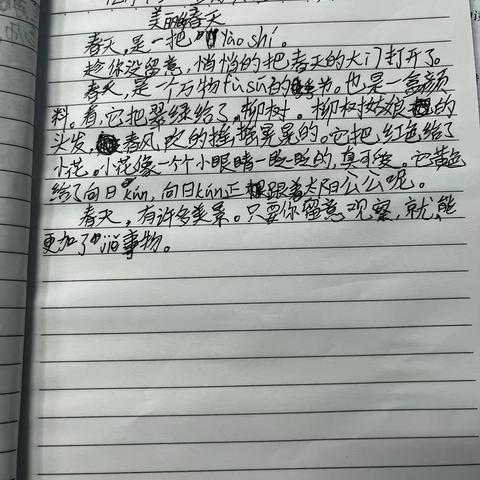 美丽春天
春天,是一把yào shi。
趁你没留意,悄悄的把春天的大门打开了。
春天,是一个万物fù sū的季节。也是一盒颜
料。看,它把翠绿给了柳树。柳树姑娘的
头发,春风吹的摇摇晃晃的。它把红色给了
小花。小花像一个个小眼睛一眨一眨的,真可爱。它黄色
给了向日kuí,向日kuí正跟着太阳公公呢。
春天,有许多美景。只要你留意观察,就能
更加了jiě事物。